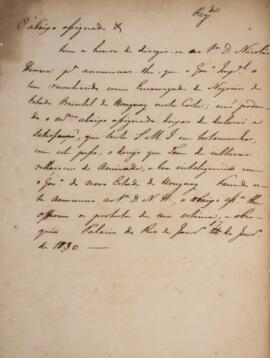 O abaixo assignado &
tem a honra de dirigir-se a Sr. D. Nicolas
Herrera pª annunciar-lhe que o Govº Impel. o
tem reconhecido como Encarregado de Negocios do
Estado Oriental do Uruguay nesta Corte; não poden-
do o mmº abaixo assignado, deixar de declarar a
Satisfação, que tanto S.M.I. em testemunhar,
com este passo, o desejo que Tem de cultivar
relações de Amizade, e boa intelligencia com
o Govº do novo Estado do Uruguay. Fazendo es-
ta annuncio ao Sr. D. N. H., o abaixo assº lhe
offerece os protestos de sua estima, e obse-
quio. Palacio do Rio de Janrº de Janrº
de 1830 —